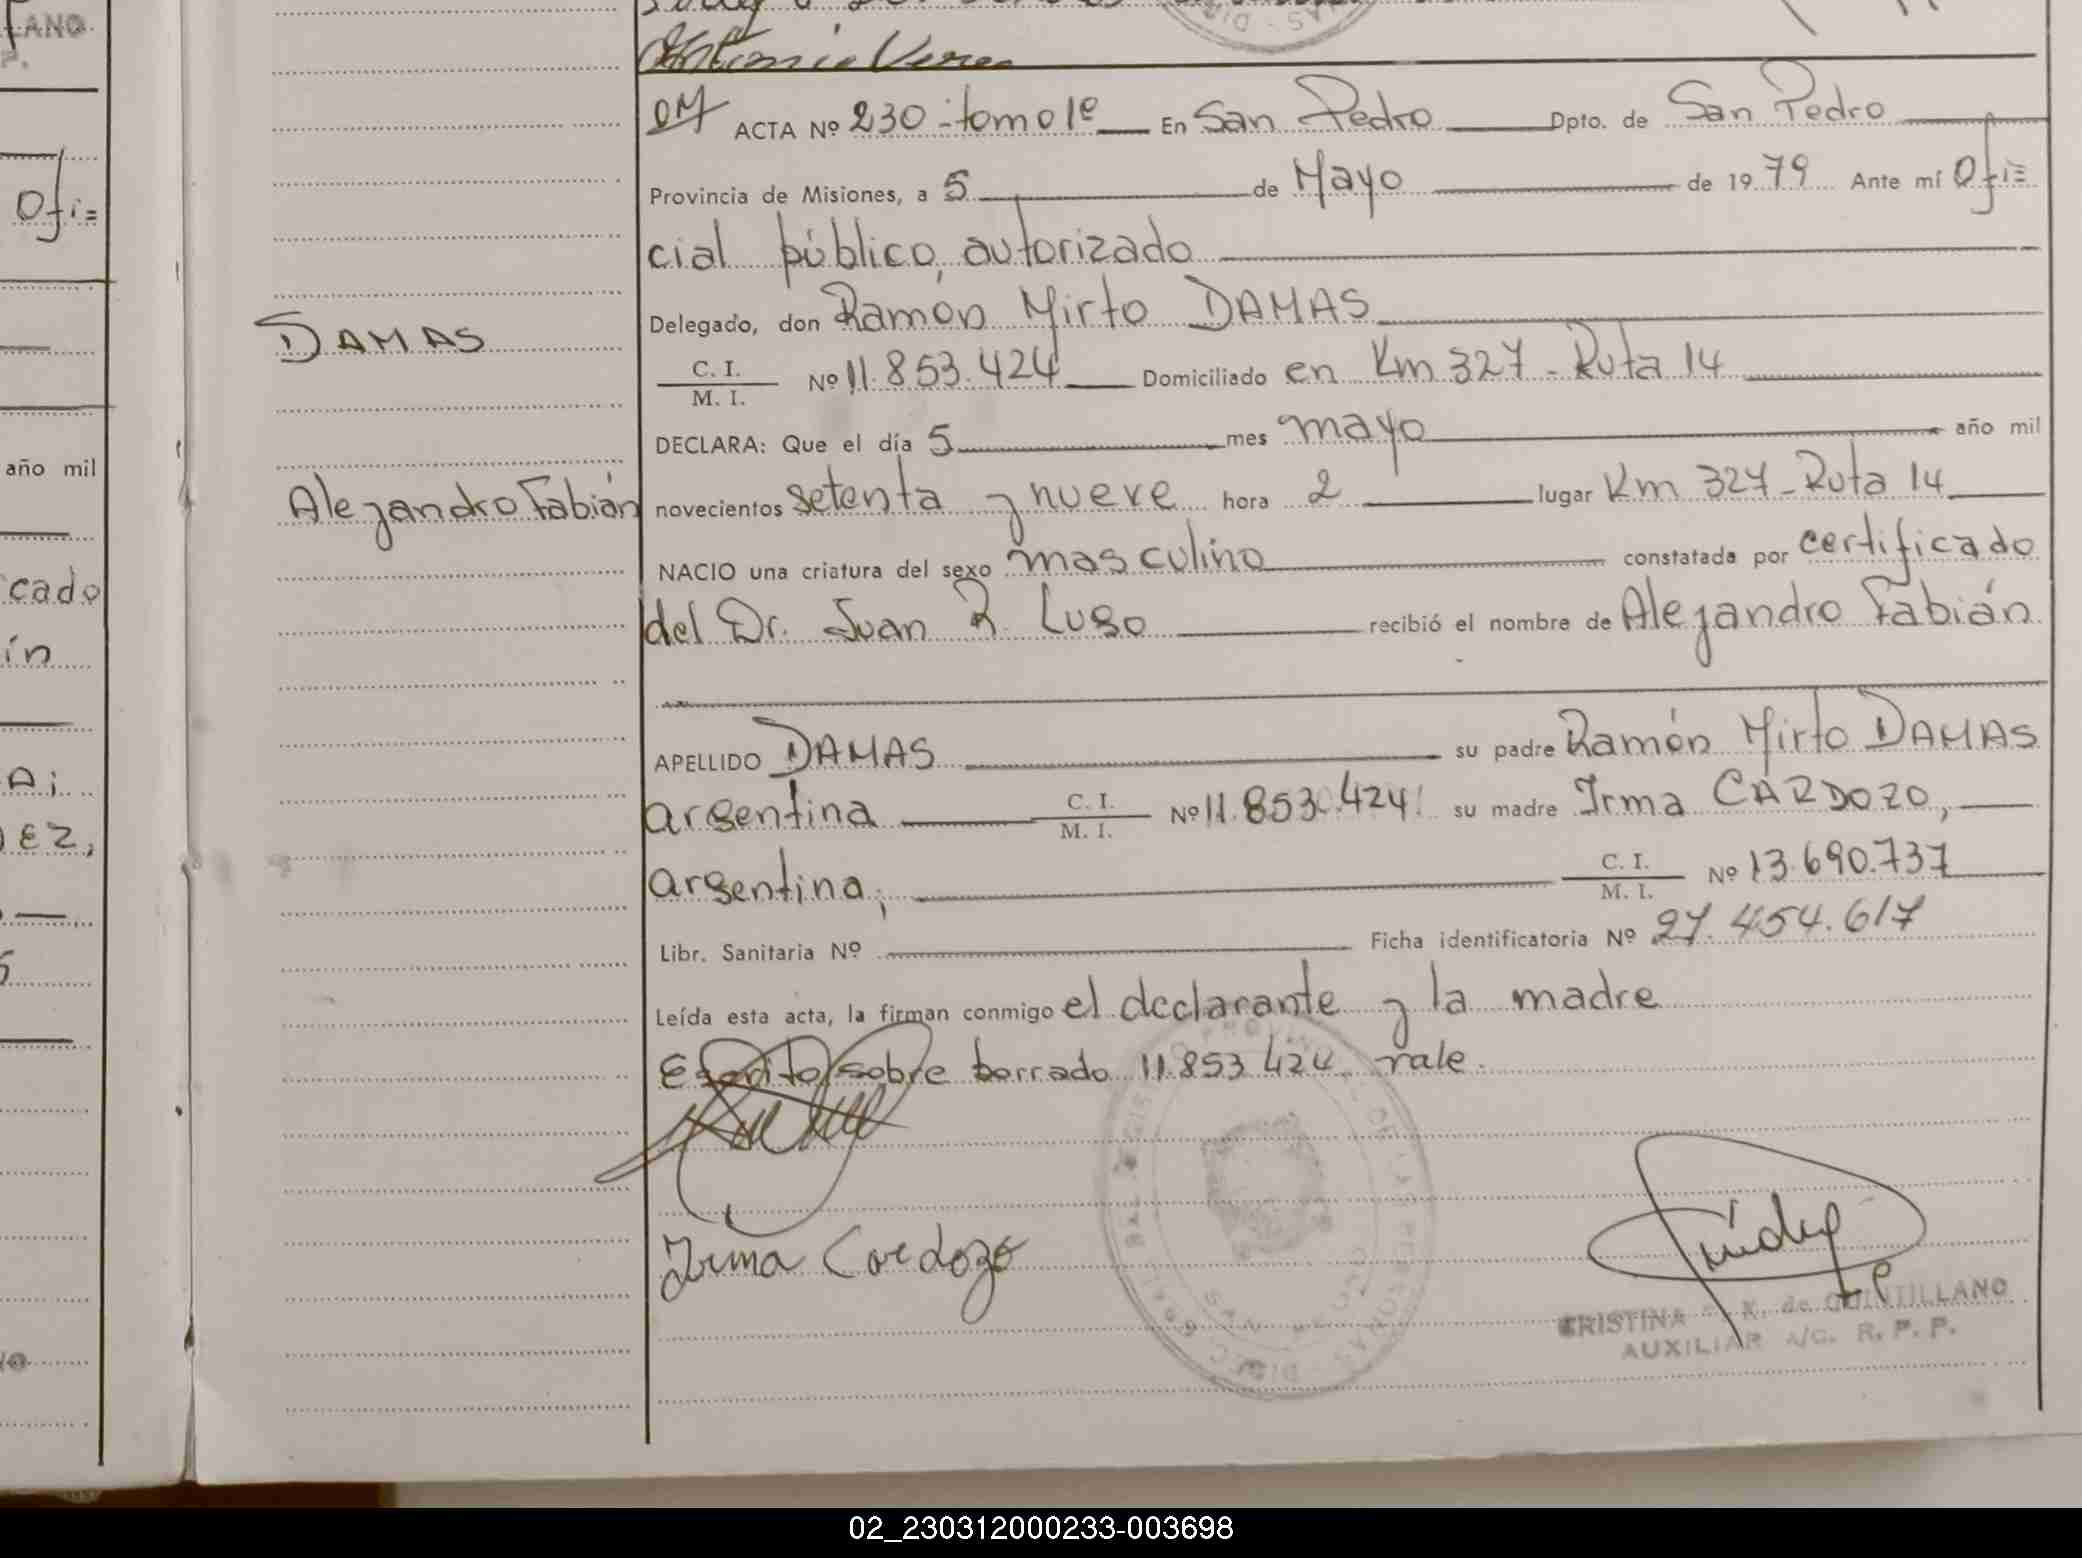 LLANO
P.
Ofi=
año mil
cado
ín
Ai
EZ,
Antonio
ACTA Nº 230 - tomo 1º En San Pedro Dpto. de San Pedro
Provincia de Misiones, a 5 de Mayo de 1979 Ante mí Ofi=
cial público, autorizado
Delegado, don Ramón Mirto DAMAS
DAMAS
C. I.
M. I. Nº 11.853.424 Domiciliado en Km 327 - Ruta 14
DECLARA: Que el día 5 mes mayo año mil
Alejandro Fabián
novecientos setenta y nueve hora 2 lugar Km 327 - Ruta 14
NACIO una criatura del sexo masculino constatada por certificado
del Dr. Juan R. Lugo recibió el nombre de Alejandro Fabián
APELLIDO DAMAS su padre Ramón Mirto DAMAS
argentina C. I.
M. I. Nº 11.853.424 su madre Irma CARDOZO,
argentina, C. I.
M. I. Nº 13.690.737
Libr. Sanitaria Nº Ficha identificatoria Nº 27.454.617
Leída esta acta, la firman conmigo el declarante y la madre
Escrito sobre borrado 11.853.424 vale.
Irma Cardozo
CRISTINA K. de QUINTILLANO
AUXILIAR A/C. R. P. P.
02_230312000233-003698